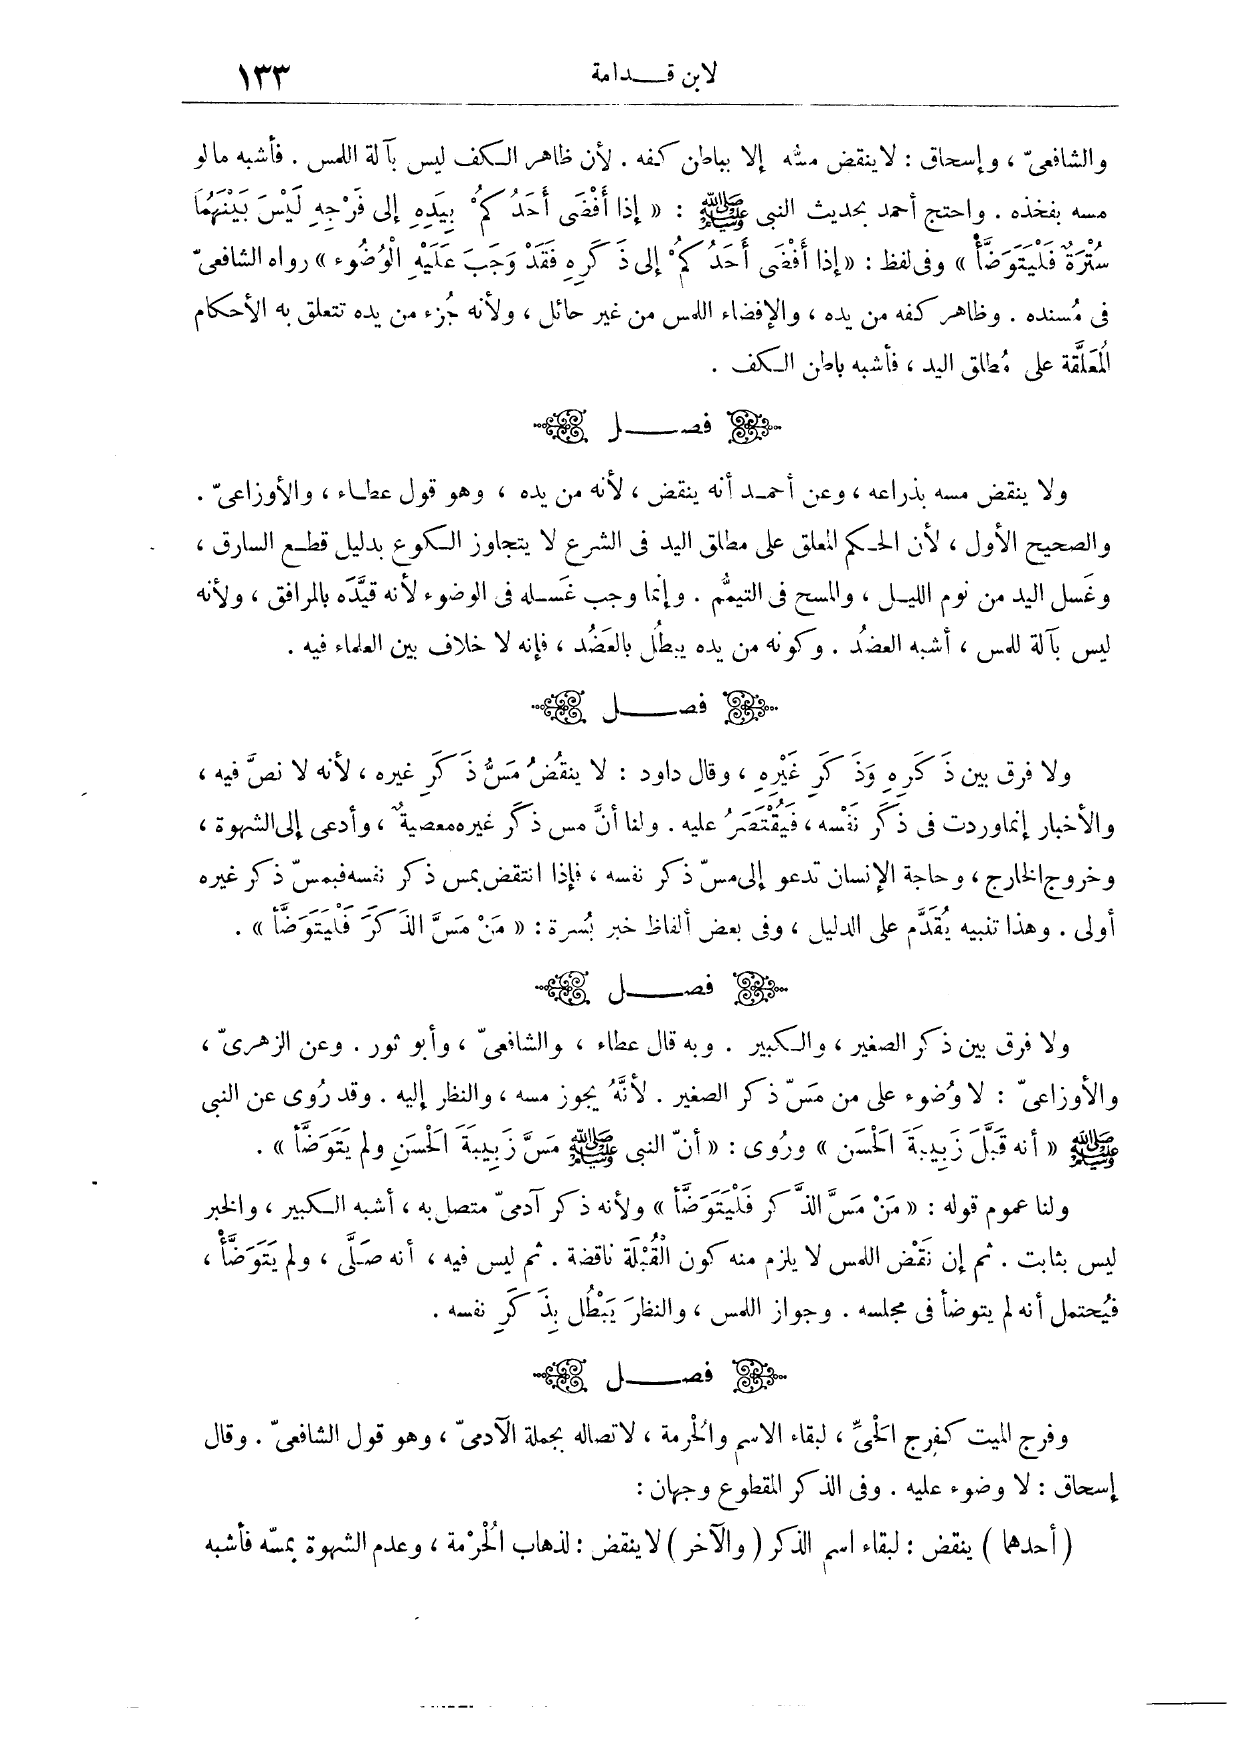 لابن قدامة ١٣٣
والشافعىّ ، وإسحاق : لا ينقض مسّه إلا بباطن كفه . لأن ظاهر الكف ليس بآلة اللمس . فأشبه ما لو
مسه بفخذه . واحتج أحمد بحديث النبى ﷺ : « إذا أَفْضَى أَحَدُكُمْ بِيَدِهِ إلى فَرْجِهِ لَيْسَ بَيْنَهُمَا
سُتْرَةٌ فَلْيَتَوَضَّأْ » وفى لفظ : « إذا أَفْضَى أَحَدُكُمْ إلى ذَكَرِهِ فَقَدْ وَجَبَ عَلَيْهِ الْوُضُوء » رواه الشافعىّ
فى مُسنده . وظاهر كفه من يده ، والإفضاء اللمس من غير حائل ، ولأنه جُزء من يده تتعلق به الأحكام
الُمعَلَّقة على مُطلق اليد ، فأشبه باطن الكف .
فصل
ولا ينقض مسه بذراعه ، وعن أحمد أنه ينقض ، لأنه من يده ، وهو قول عطاء ، والأوزاعىّ .
والصحيح الأول ، لأن الحكم المعلق على مطلق اليد فى الشرع لا يتجاوز الكوع بدليل قطع السارق ،
وغَسل اليد من نوم الليل ، والمسح فى التيمُّم . وإنما وجب غَسله فى الوضوء لأنه قيَّدَه بالمرافق ، ولأنه
ليس بآلة للمس ، أشبه العضُد . وكونه من يده يبطُل بالعَضُد ، فإنه لا خلاف بين العلماء فيه .
فصل
ولا فرق بين ذَكَرِهِ وَذَكَرِ غَيْرِهِ ، وقال داود : لا ينقُضُ مَسُّ ذَكَرِ غيره ، لأنه لا نصَّ فيه ،
والأخبار إنما وردت فى ذكَرِ نَفْسه ، فَيُقْتَصَرُ عليه . ولنا أنَّ مس ذكر غيره معصيةٌ ، وأدعى إلى الشهوة ،
وخروج الخارج ، وحاجة الإنسان تدعو إلى مسّ ذكر نفسه ، فإذا انتقض بمس ذكر نفسه فبمسّ ذكر غيره
أولى . وهذا تنبيه يُقَدَّم على الدليل ، وفى بعض ألفاظ خبر بُسرة : « مَنْ مَسَّ الذَكَرَ فَلْيَتَوَضَّأ » .
فصل
ولا فرق بين ذكر الصغير ، والكبير . وبه قال عطاء ، والشافعىّ ، وأبو ثور . وعن الزهرىّ ،
والأوزاعىّ : لا وُضوء على من مَسّ ذكر الصغير . لأنَّهُ يجوز مسه ، والنظر إليه . وقد رُوى عن النبى
ﷺ « أنه قَبَّلَ زَبِيبَةَ الَحْسَن » ورُوى : « أنّ النبى ﷺ مَسَّ زَبِيبَةَ الَحْسَنِ ولم يَتَوَضَّأ » .
ولنا عموم قوله : « مَنْ مَسَّ الذَّكر فَلْيَتَوَضَّأ » ولأنه ذكر آدمىّ متصل به ، أشبه الكبير ، والخبر
ليس بثابت . ثم إن نَقْض اللمس لا يلزم منه كون الْقُبْلَة ناقضة . ثم ليس فيه ، أنه صَلَّى ، ولم يَتَوَضَّأْ ،
فيُحتمل أنه لم يتوضأ فى مجلسه . وجواز اللمس ، والنظرَ يَبْطُل بِذَكَرِ نفسه .
فصل
وفرج الميت كفرج الْحَىِّ ، لبقاء الاسم والُحْرمة ، لاتصاله بجملة الآدمىّ ، وهو قول الشافعىّ . وقال
إسحاق : لا وضوء عليه . وفى الذكر المقطوع وجهان :
( أحدهما ) ينقض : لبقاء اسم الذكر ( والآخر ) لا ينقض : لذهاب الُحْرْمة ، وعدم الشهوة بمسّه فأشبه